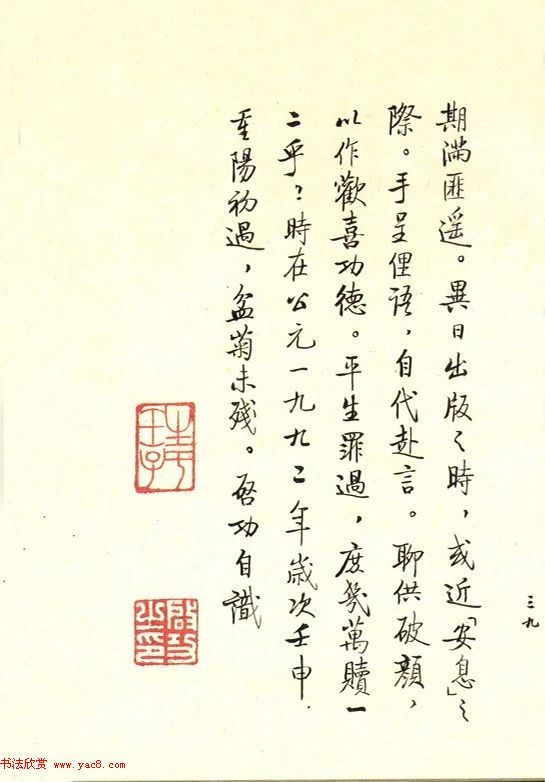 期滿匪遥。異日出版之時，或近「安息」之
際。手呈俚語，自代赴言。聊供破顏，
以作歡喜功德。平生罪過，庶幾萬贖一
二乎？時在公元一九九二年歲次壬申，
重陽初過，盆菊未殘。啓功自識
啟功之印
三九
书法欣赏
www.yac8.com